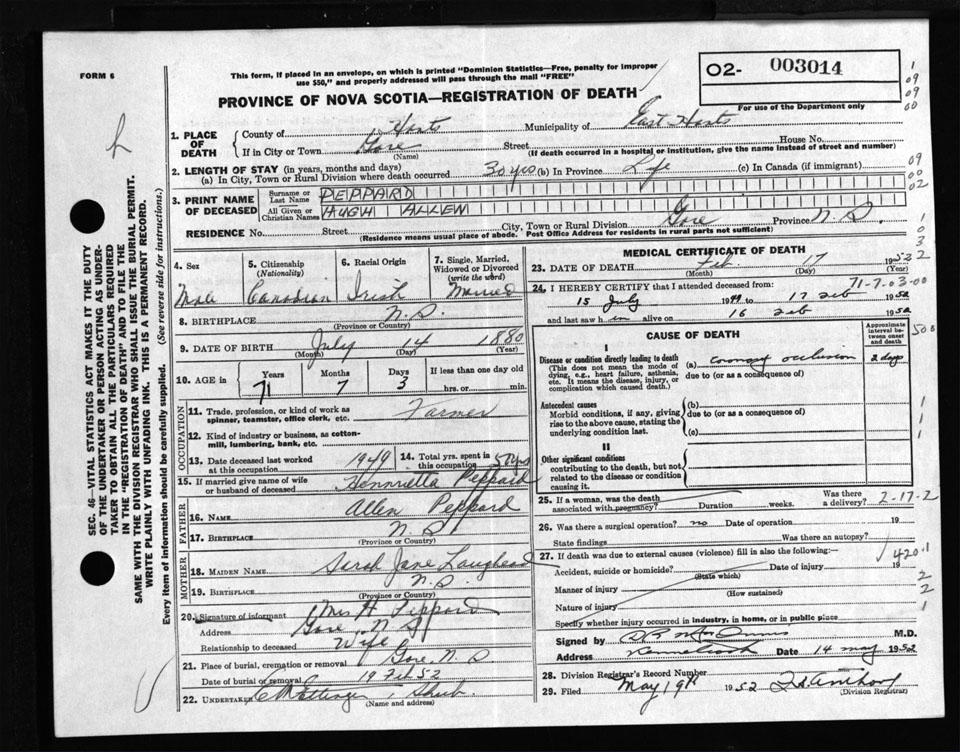 FORM 6
This form, if placed in an envelope, on which is printed "Dominion Statistics—Free, penalty for improper
use $50," and properly addressed will pass through the mail "FREE"
PROVINCE OF NOVA SCOTIA—REGISTRATION OF DEATH
O2- 003014
For use of the Department only
1. PLACE OF DEATH
County of Hants Municipality of East Hants
If in City or Town Gore Street House No.
(Name) (If death occurred in a hospital or institution, give the name instead of street and number)
2. LENGTH OF STAY (in years, months and days)
(a) In City, Town or Rural Division where death occurred 30 yrs (b) In Province Life (c) In Canada (if immigrant)
3. PRINT NAME OF DECEASED
Surname or Last Name PEPPARD
All Given or Christian Names HUGH ALLEN
RESIDENCE No. Street City, Town or Rural Division Gore Province N.S.
(Residence means usual place of abode. Post Office Address for residents in rural parts not sufficient)
4. Sex Male
5. Citizenship (Nationality) Canadian
6. Racial Origin Irish
7. Single, Married, Widowed or Divorced (write the word) Married
8. BIRTHPLACE N.S.
(Province or Country)
9. DATE OF BIRTH July 14 1880
(Month) (Day) (Year)
10. AGE in Years 71 Months 7 Days 3 If less than one day old hrs. or min.
OCCUPATION
11. Trade, profession, or kind of work as spinner, teamster, office clerk, etc. Farmer
12. Kind of industry or business, as cotton-mill, lumbering, bank, etc.
13. Date deceased last worked at this occupation 1949
14. Total yrs. spent in this occupation
15. If married give name of wife or husband of deceased Hennrietta Peppard
FATHER
16. NAME Allen Peppard
17. BIRTHPLACE N.S.
(Province or Country)
MOTHER
18. MAIDEN NAME Sarah Jane Laughead
19. BIRTHPLACE N.S.
(Province or Country)
20. Signature of informant Mrs H Peppard
Address Gore N.S
Relationship to deceased Wife
21. Place of burial, cremation or removal Gore N.S
Date of burial or removal 19 Feb 52
22. UNDERTAKER
(Name and address)
MEDICAL CERTIFICATE OF DEATH
23. DATE OF DEATH Feb. 17 1952
(Month) (Day) (Year)
71-7-03-00
24. I HEREBY CERTIFY that I attended deceased from:
15 July 1949 to 17 Feb 1952
and last saw him alive on 16 Feb 1952
CAUSE OF DEATH
Approximate interval between onset and death
I
Disease or condition directly leading to death (a) coronary occlusion 2 days
(This does not mean the mode of dying, e.g., heart failure, asthenia, etc. It means the disease, injury, or complication which caused death.)
due to (or as a consequence of)
Antecedent causes (b)
Morbid conditions, if any, giving rise to the above cause, stating the underlying condition last.
due to (or as a consequence of)
(c)
II
Other significant conditions
contributing to the death, but not related to the disease or condition causing it.
25. If a woman, was the death associated with pregnancy? Duration weeks. Was there a delivery?
2-17-2
26. Was there a surgical operation? no Date of operation 19
State findings Was there an autopsy?
27. If death was due to external causes (violence) fill in also the following:—
Accident, suicide or homicide? Date of injury 19
(State which)
420.1
Manner of injury
(How sustained)
Nature of injury
Specify whether injury occurred in industry, in home, or in public place
Signed by M.D.
Address Kennetcook Date 14 May 1952
28. Division Registrar's Record Number
29. Filed May 19th 1952
(Division Registrar)
SEC. 46—VITAL STATISTICS ACT MAKES IT THE DUTY
OF THE UNDERTAKER OR PERSON ACTING AS UNDER-
TAKER TO OBTAIN ALL THE PARTICULARS REQUIRED
IN THE "REGISTRATION OF DEATH" AND TO FILE THE
SAME WITH THE DIVISION REGISTRAR WHO SHALL ISSUE THE BURIAL PERMIT.
WRITE PLAINLY WITH UNFADING INK. THIS IS A PERMANENT RECORD.
Every item of information should be carefully supplied. (See reverse side for instructions.)